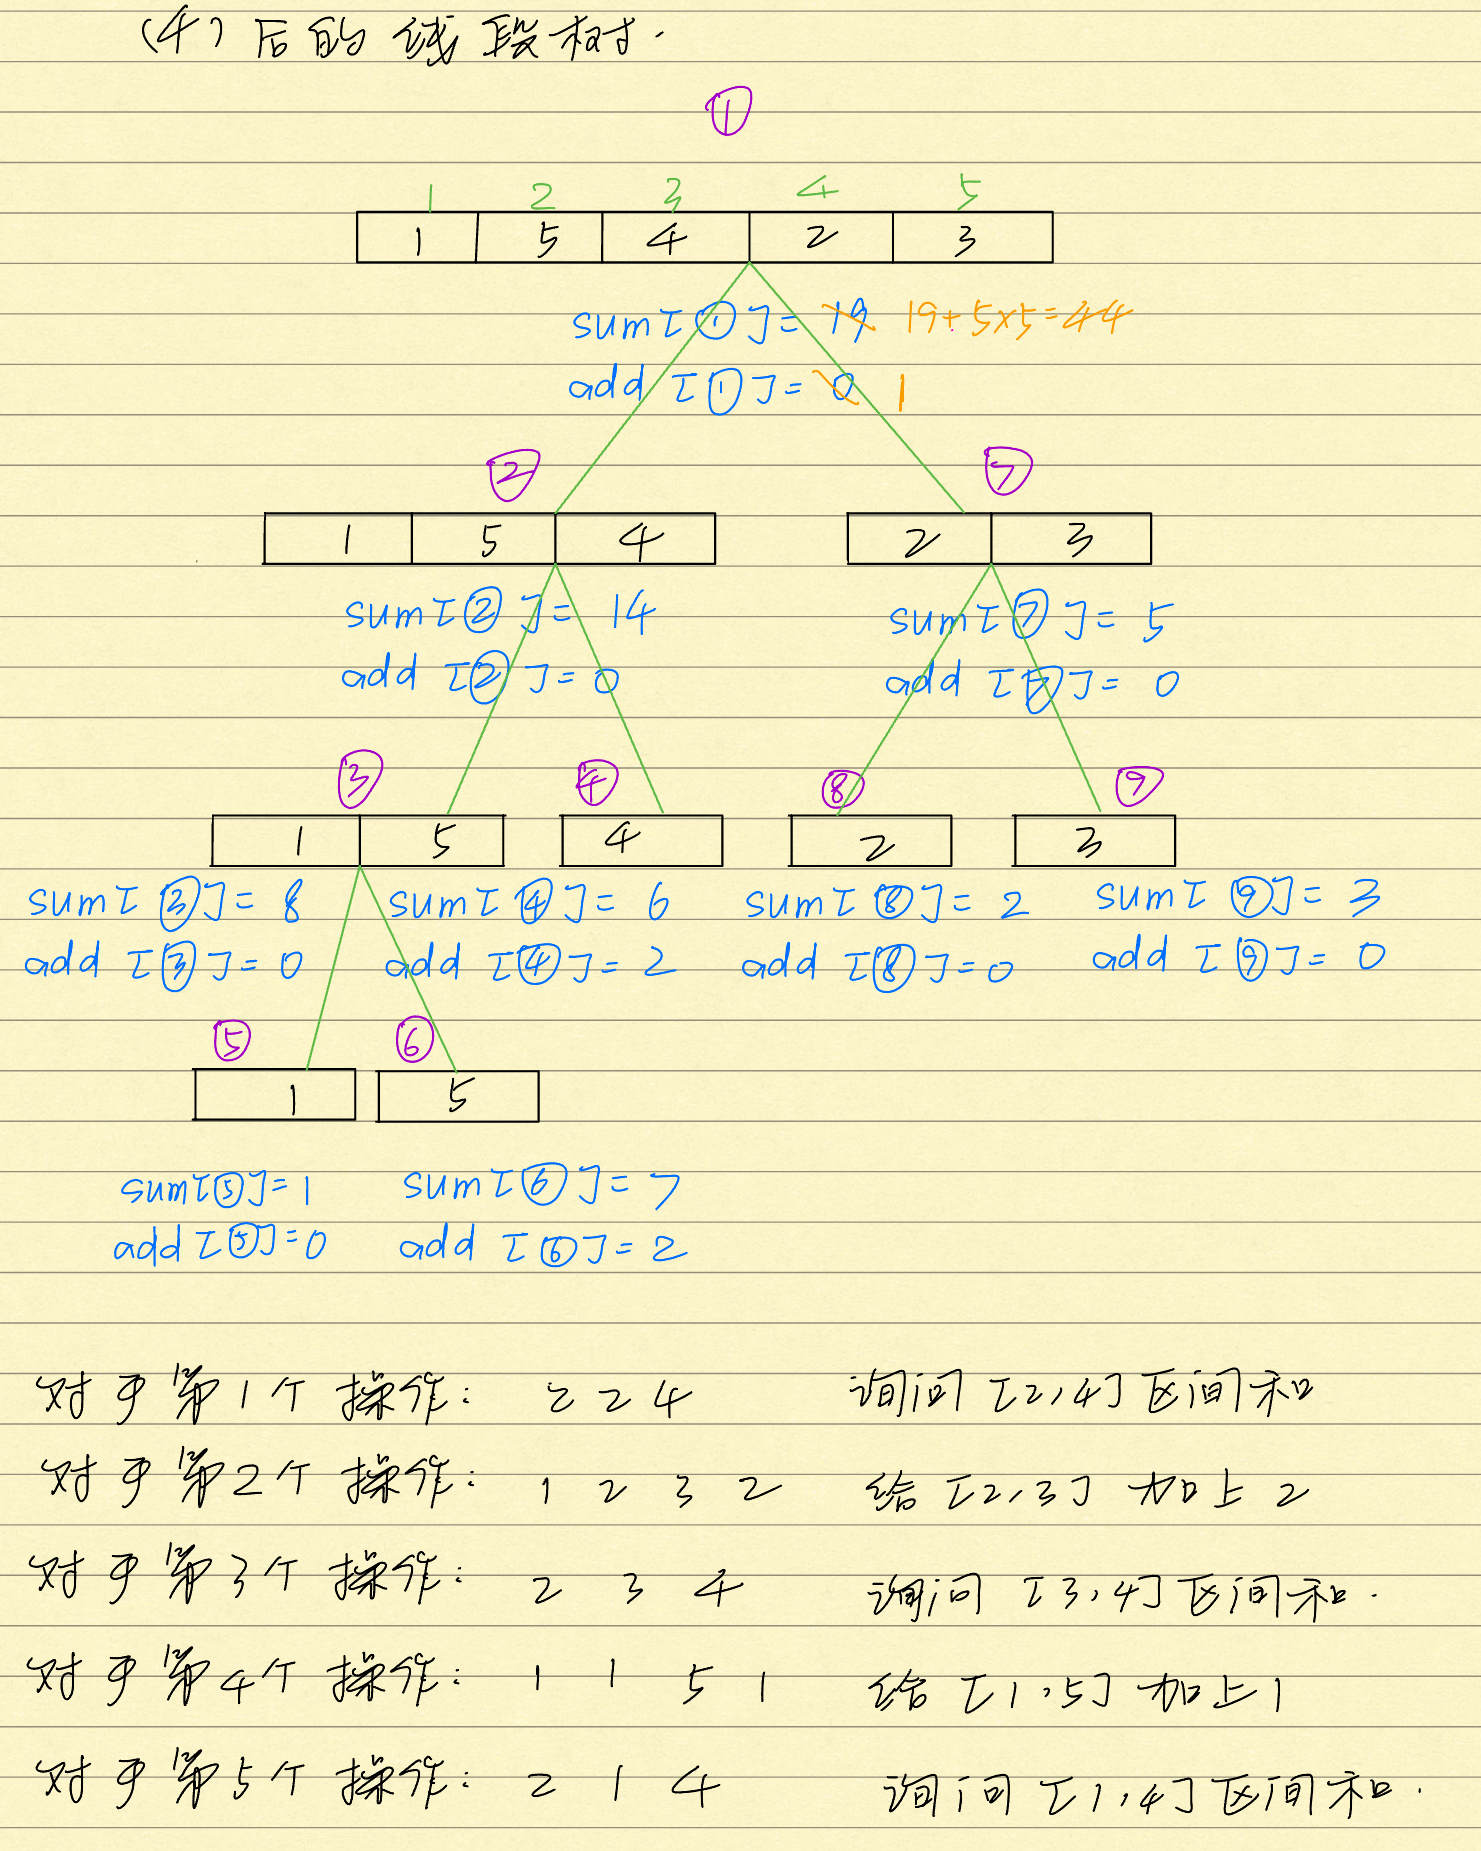 (4) 后的线段树.
①
1 2 3 4 5
1 5 4 2 3
sum[①]= 19 19+5×5=44
add [①]= 0 1
② ⑦
1 5 4 2 3
sum[②]= 14 sum[⑦]= 5
add [②]= 0 add [⑦]= 0
③ ④ ⑧ ⑨
1 5 4 2 3
sum[③]= 8 sum[④]= 6 sum[⑧]= 2 sum[⑨]= 3
add [③]= 0 add [④]= 2 add [⑧]= 0 add [⑨]= 0
⑤ ⑥
1 5
sum[⑤]=1 sum[⑥]= 7
add [⑤]=0 add [⑥]= 2
对于第1个操作: 2 2 4 询问 [2,4] 区间和
对于第2个操作: 1 2 3 2 给 [2,3] 加上 2
对于第3个操作: 2 3 4 询问 [3,4] 区间和.
对于第4个操作: 1 1 5 1 给 [1,5] 加上1
对于第5个操作: 2 1 4 询问 [1,4] 区间和.